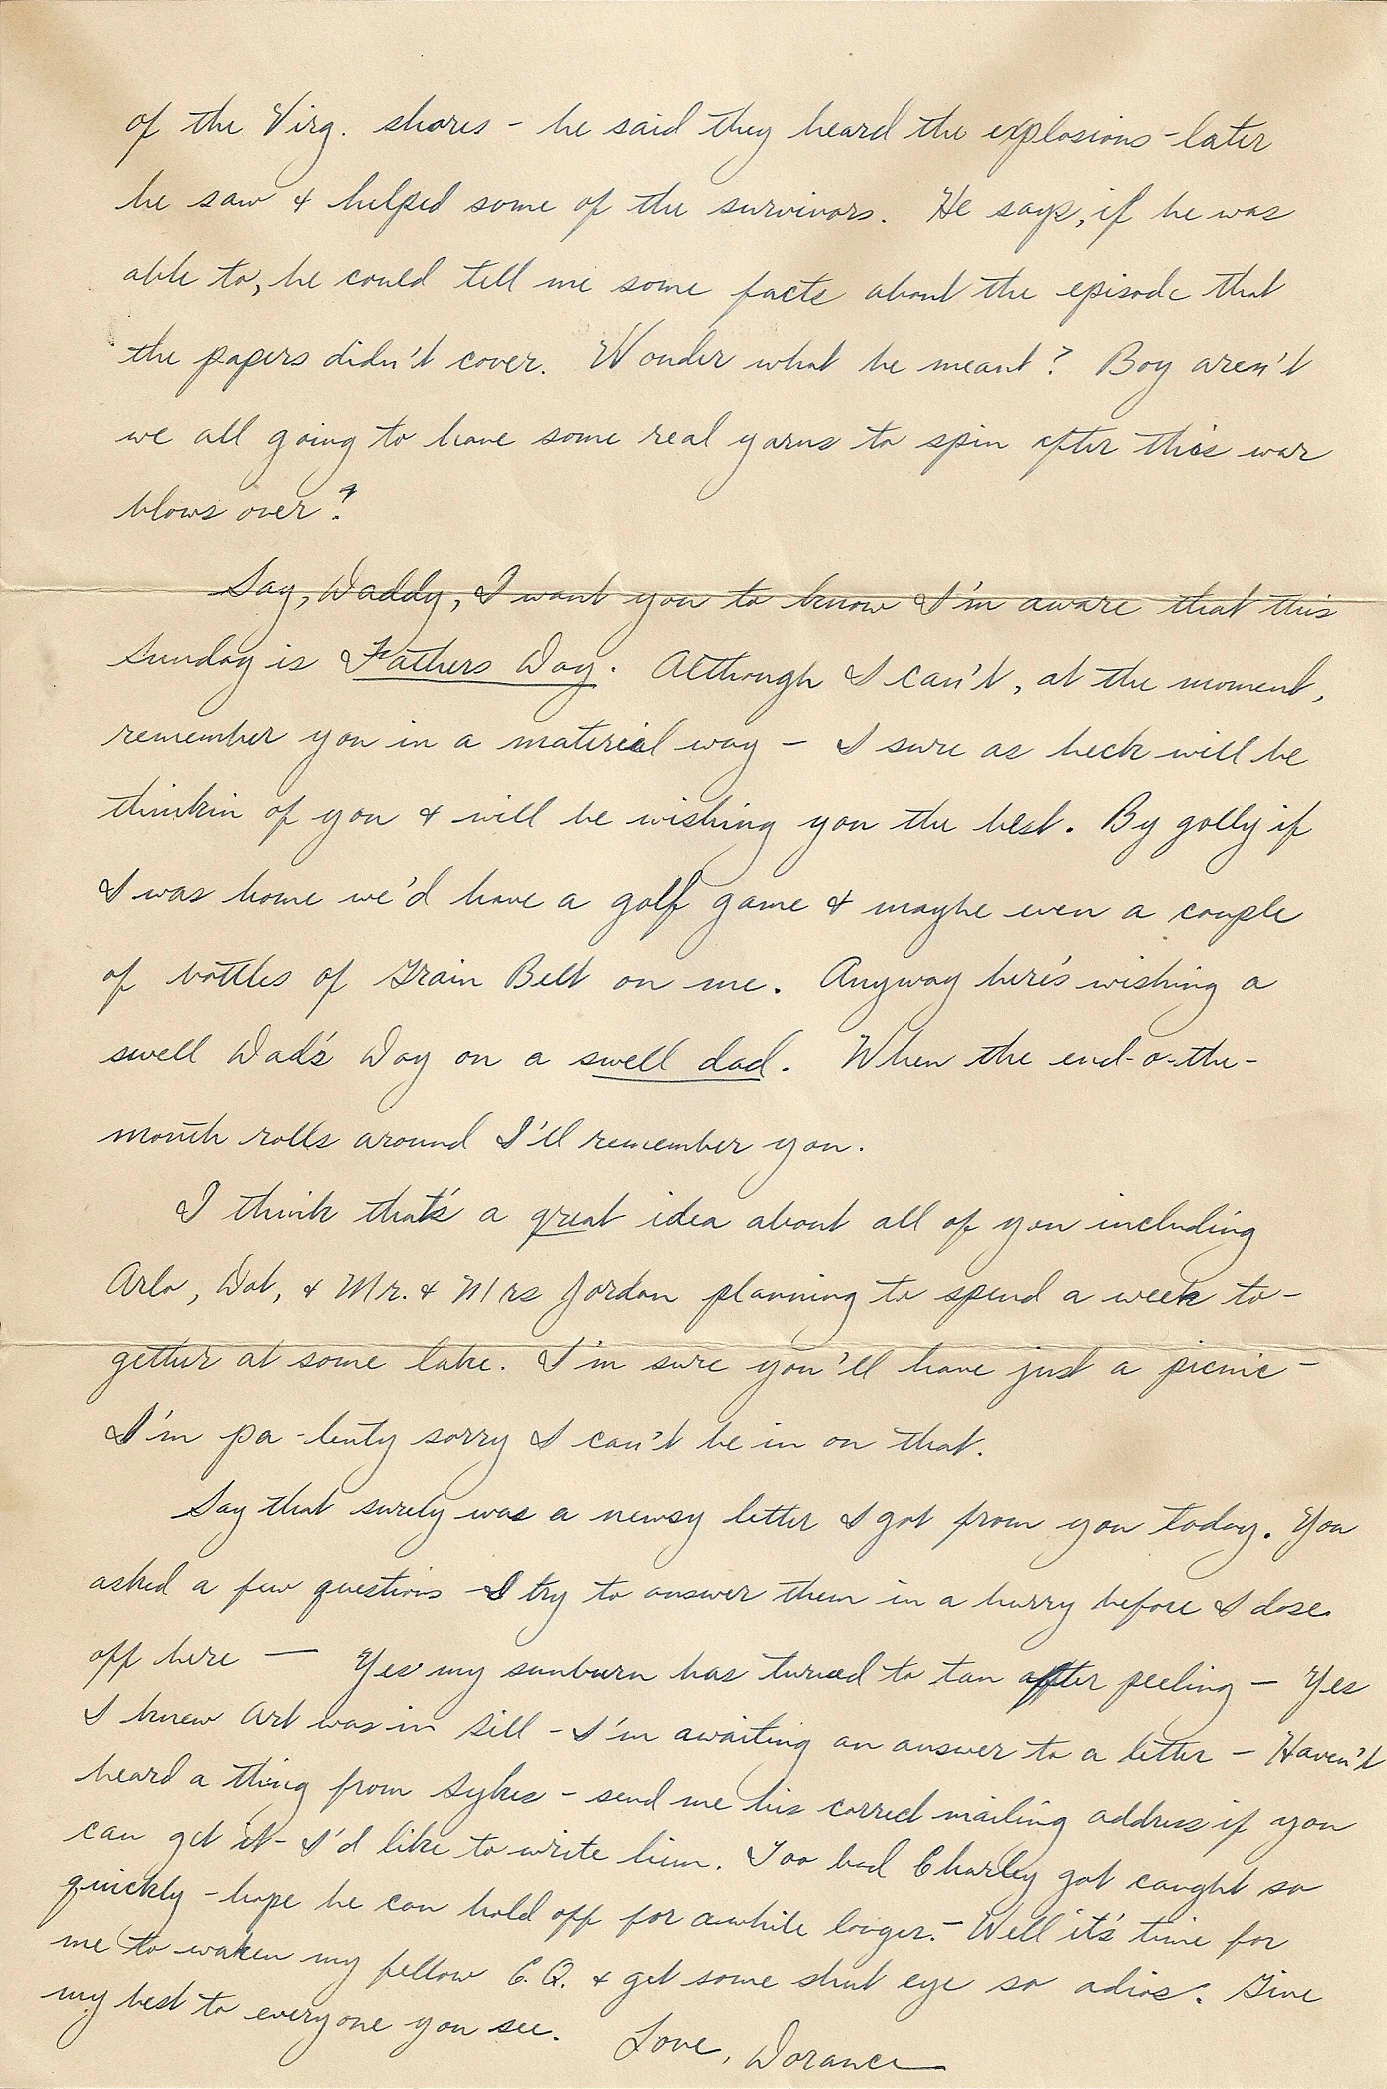 of the Virg. shores - he said they heard the explosions - later
he saw & helped some of the survivors. He says, if he was
able to, he could tell me some facts about the episode that
the papers didn't cover. Wonder what he meant? Boy aren't
we all going to have some real yarns to spin after this war
blows over?
Say, Daddy, I want you to know I'm aware that this
Sunday is Fathers Day. Although I can't, at the moment,
remember you in a material way - I sure as heck will be
thinkin of you & will be wishing you the best. By golly if
I was home we'd have a golf game & maybe even a couple
of bottles of Grain Belt on me. Anyway here's wishing a
swell Dad's Day on a swell dad. When the end-o-the-
month rolls around I'll remember you.
I think that's a great idea about all of you including
Arlo, Dot, & Mr. & Mrs Jordan planning to spend a week to-
gether at some lake. I'm sure you'll have just a picnic -
I'm pa-lenty sorry I can't be in on that.
Say that surely was a newsy letter I got from you today. You
asked a few questions - I try to answer them in a hurry before I dose
off here — Yes my sunburn has turned to tan after peeling — Yes
I knew Art was in Sill - I'm awaiting an answer to a letter - Haven't
heard a thing from Sykes - send me his correct mailing address if you
can get it - I'd like to write him. Too bad Charley got caught so
quickly - hope he can hold off for awhile longer. - Well it's time for
me to waken my fellow C.Q. & get some shut eye so adios. Give
my best to everyone you see. Love, Dorance